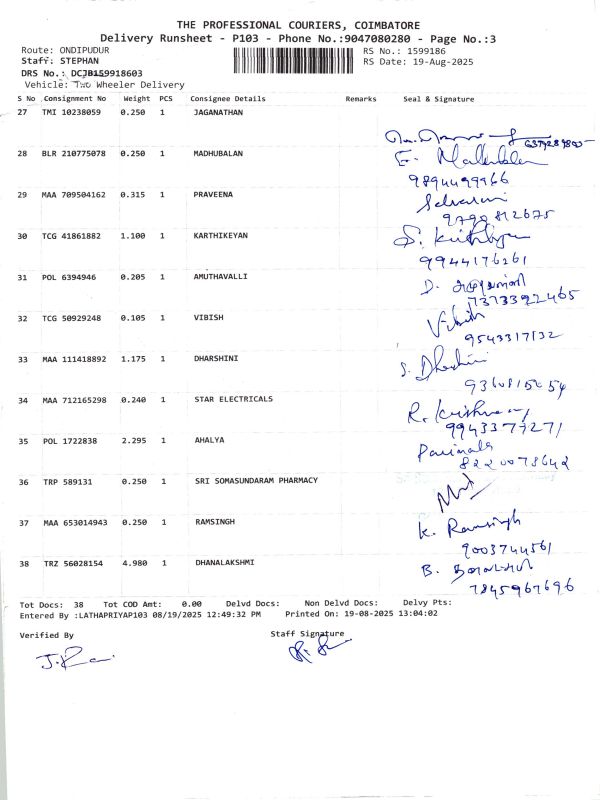 THE PROFESSIONAL COURIERS, COIMBATORE
Delivery Runsheet - P103 - Phone No.:9047080280 - Page No.:3
Route: ONDIPUDUR RS No.: 1599186
Staff: STEPHAN RS Date: 19-Aug-2025
DRS No.: DCJB159918603
Vehicle: Two Wheeler Delivery
S No Consignment No Weight PCS Consignee Details Remarks Seal & Signature
27 TMI 10238059 0.250 1 JAGANATHAN
28 BLR 210775078 0.250 1 MADHUBALAN
9894499966
29 MAA 709504162 0.315 1 PRAVEENA
9790812675
30 TCG 41861882 1.100 1 KARTHIKEYAN
9944176261
31 POL 6394946 0.205 1 AMUTHAVALLI
7373392465
32 TCG 50929248 0.105 1 VIBISH Vibish
9543317132
33 MAA 111418892 1.175 1 DHARSHINI S. Dharshini
34 MAA 712165298 0.240 1 STAR ELECTRICALS
9943377271
35 POL 1722838 2.295 1 AHALYA Parimala
8220073642
36 TRP 589131 0.250 1 SRI SOMASUNDARAM PHARMACY
37 MAA 653014943 0.250 1 RAMSINGH K. Ramsingh
9003744561
38 TRZ 56028154 4.980 1 DHANALAKSHMI
7845967696
Tot Docs: 38 Tot COD Amt: 0.00 Delvd Docs: Non Delvd Docs: Delvy Pts:
Entered By :LATHAPRIYAP103 08/19/2025 12:49:32 PM Printed On: 19-08-2025 13:04:02
Verified By Staff Signature